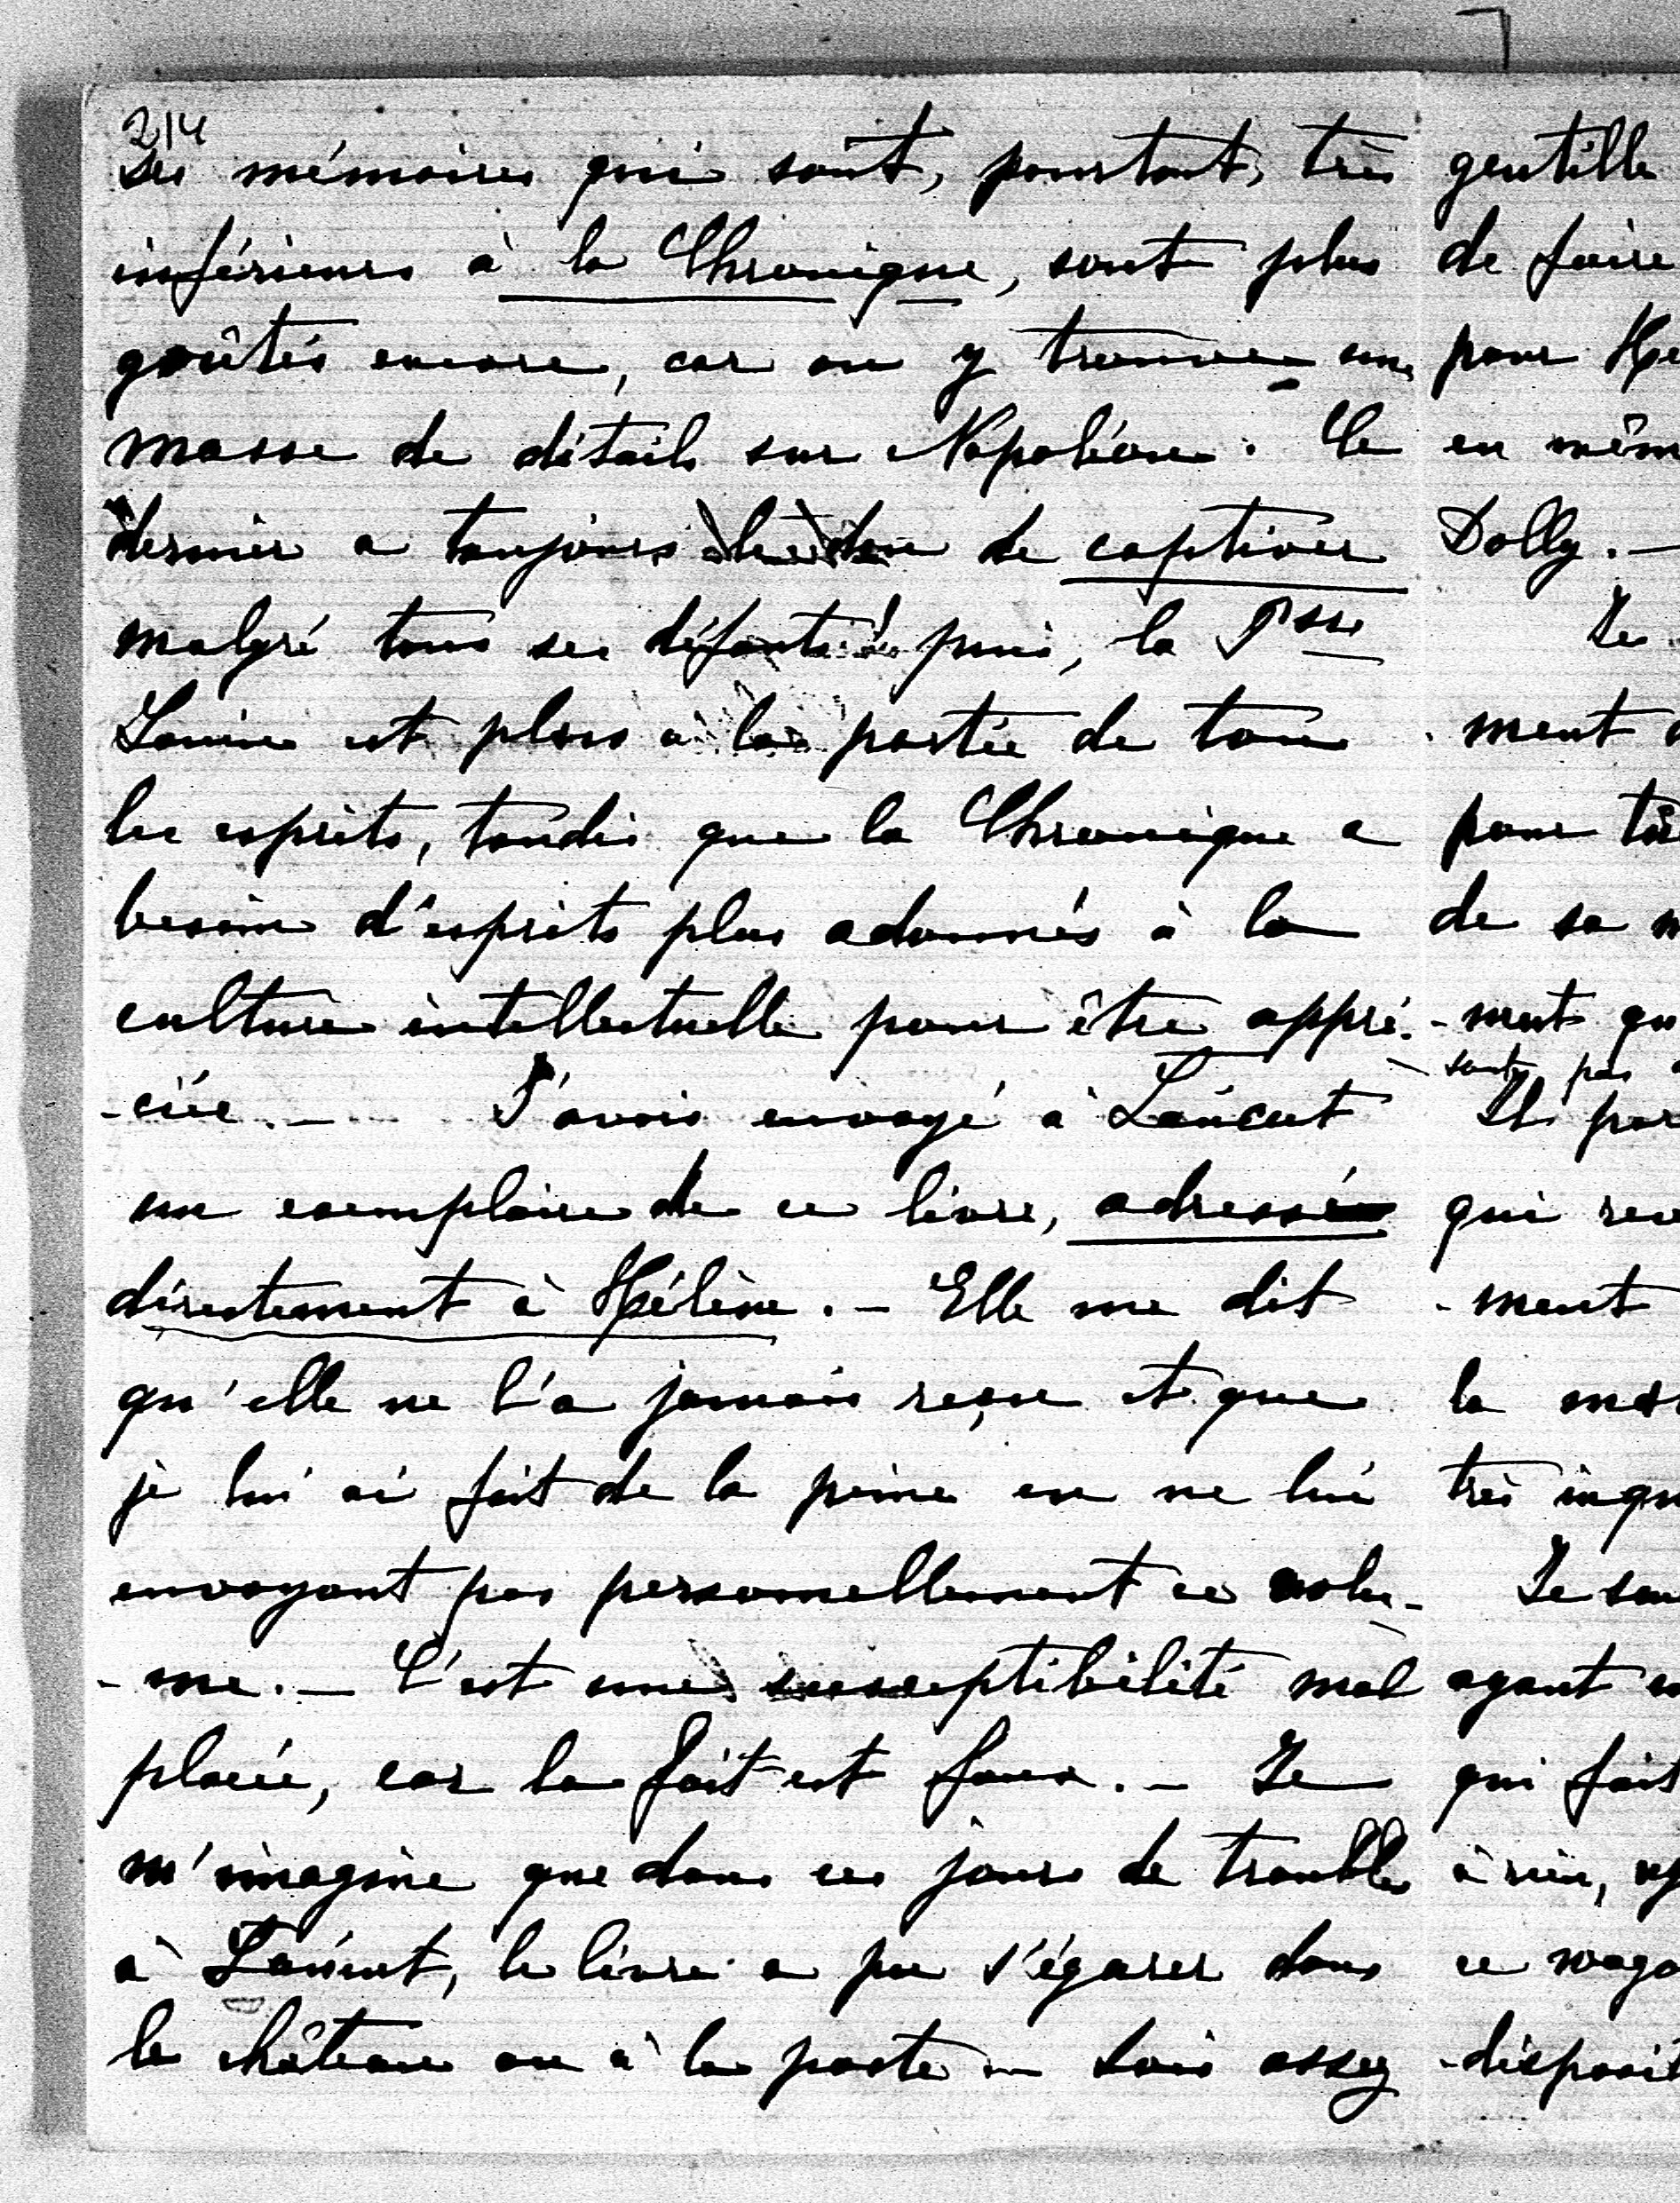 214
Ses mémoires qui sont, pourtant, très
inférieurs à la Chronique, sont plus
goûtés encore, car on y trouve une
masse de détails sur Napoléon. Ce
dernier a toujours le don de captiver
malgré tous ses défauts & puis, la Psse
Louise est plus à la portée de tous
les esprits, tandis que la Chronique a
besoin d'esprits plus adonnés à la
culture intellectuelle pour être appré-
-ciée. - J'avais envoyé à Łańcut
un exemplaire de ce livre, adressé
directement à Hélène. - Elle me dit
qu'elle ne l'a jamais reçu et que
je lui ai fait de la peine en ne lui
envoyant pas personnellement ce volu-
-me. - C'est une susceptibilité mal
placée, car le fait est faux. - Je
m'imagine que dans ces jours de troubles
à Łańcut, le livre a pu s'égarer dans
le château ou à la poste - Sois assez
gentille
de faire
pour
en mêm
Dolly. -
Je
ment
pour
de sa
-ment qu
sont pas
Il par
qui
-ment
la
très inqu
Je
ayant
qui fait
à rien,
ce
-disposit